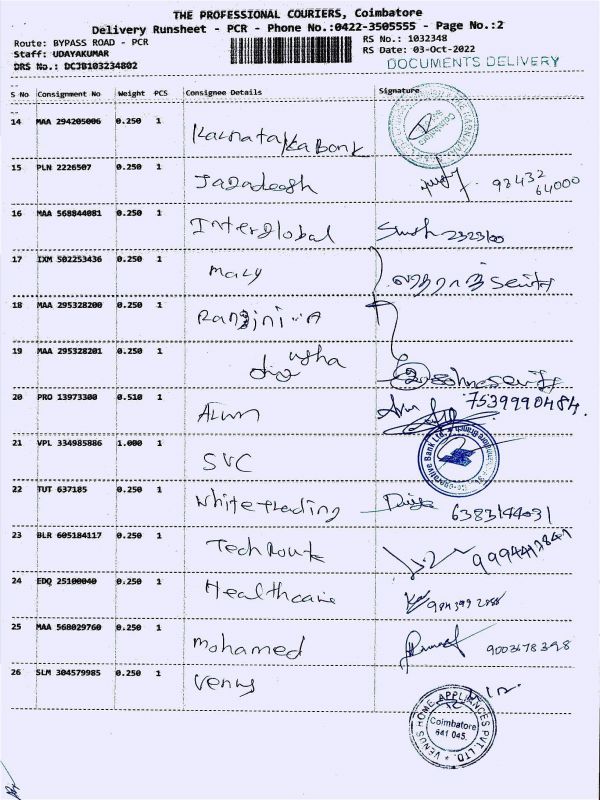 THE PROFESSIONAL COURIERS, Coimbatore
Delivery Runsheet - PCR - Phone No.:0422-3505555 - Page No.:2
Route: BYPASS ROAD - PCR
RS No.: 1032348
Staff: UDAYAKUMAR
RS Date: 03-Oct-2022
DRS No.: DCJB103234802
DOCUMENTS DELIVERY
S No Consignment No Weight PCS Consignee Details Signature
14 MAA 294205006 0.250 1 Karnataka Bank
15 PLN 2226507 0.250 1 Jagadeesh 98432 64000
16 MAA 568844081 0.250 1 Interglobal
17 IXM 502253436 0.250 1 Mary
18 MAA 295328200 0.250 1 Ranjini A
19 MAA 295328201 0.250 1 usha
20 PRO 13973300 0.510 1 Arun 7539990484
21 VPL 334985886 1.000 1 SVC
22 TUT 637185 0.250 1 White trading 6383144031
23 BLR 605184117 0.250 1 Tech Route
24 EDQ 25100040 0.250 1 Healthcare
25 MAA 568029760 0.250 1 mohamed 9003678398
26 SLM 304579985 0.250 1 Venus
VENUS HOME APPLIANCES PVT. LTD.
Coimbatore
641 045.